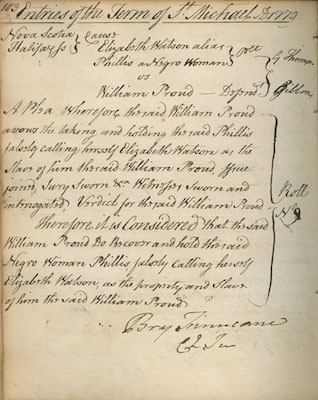 103 Entries of the Term of St. Michael 1779
Nova Scotia
Halifax ss
Cause
Elizabeth Watson alias
Phillis a Negro Woman
Plt
vs
William Proud — Defendt
G Thomson
Gibbon
A Plea Wherefore the said William Proud
avows the taking and holding the said Phillis
falsely calling herself Elizabeth Watson as the
Slave of him the said William Proud Issue
joined, Jury Sworn &ca Witnesses Sworn and
interrogated, Verdict for the said William Proud
Roll
No
Therefore it is Considered that the said
William Proud Do Recover and hold the said
Negro Woman Phillis falsely calling herself
Elizabeth Watson, as the property and Slave
of him the said William Proud
Bry Finucane